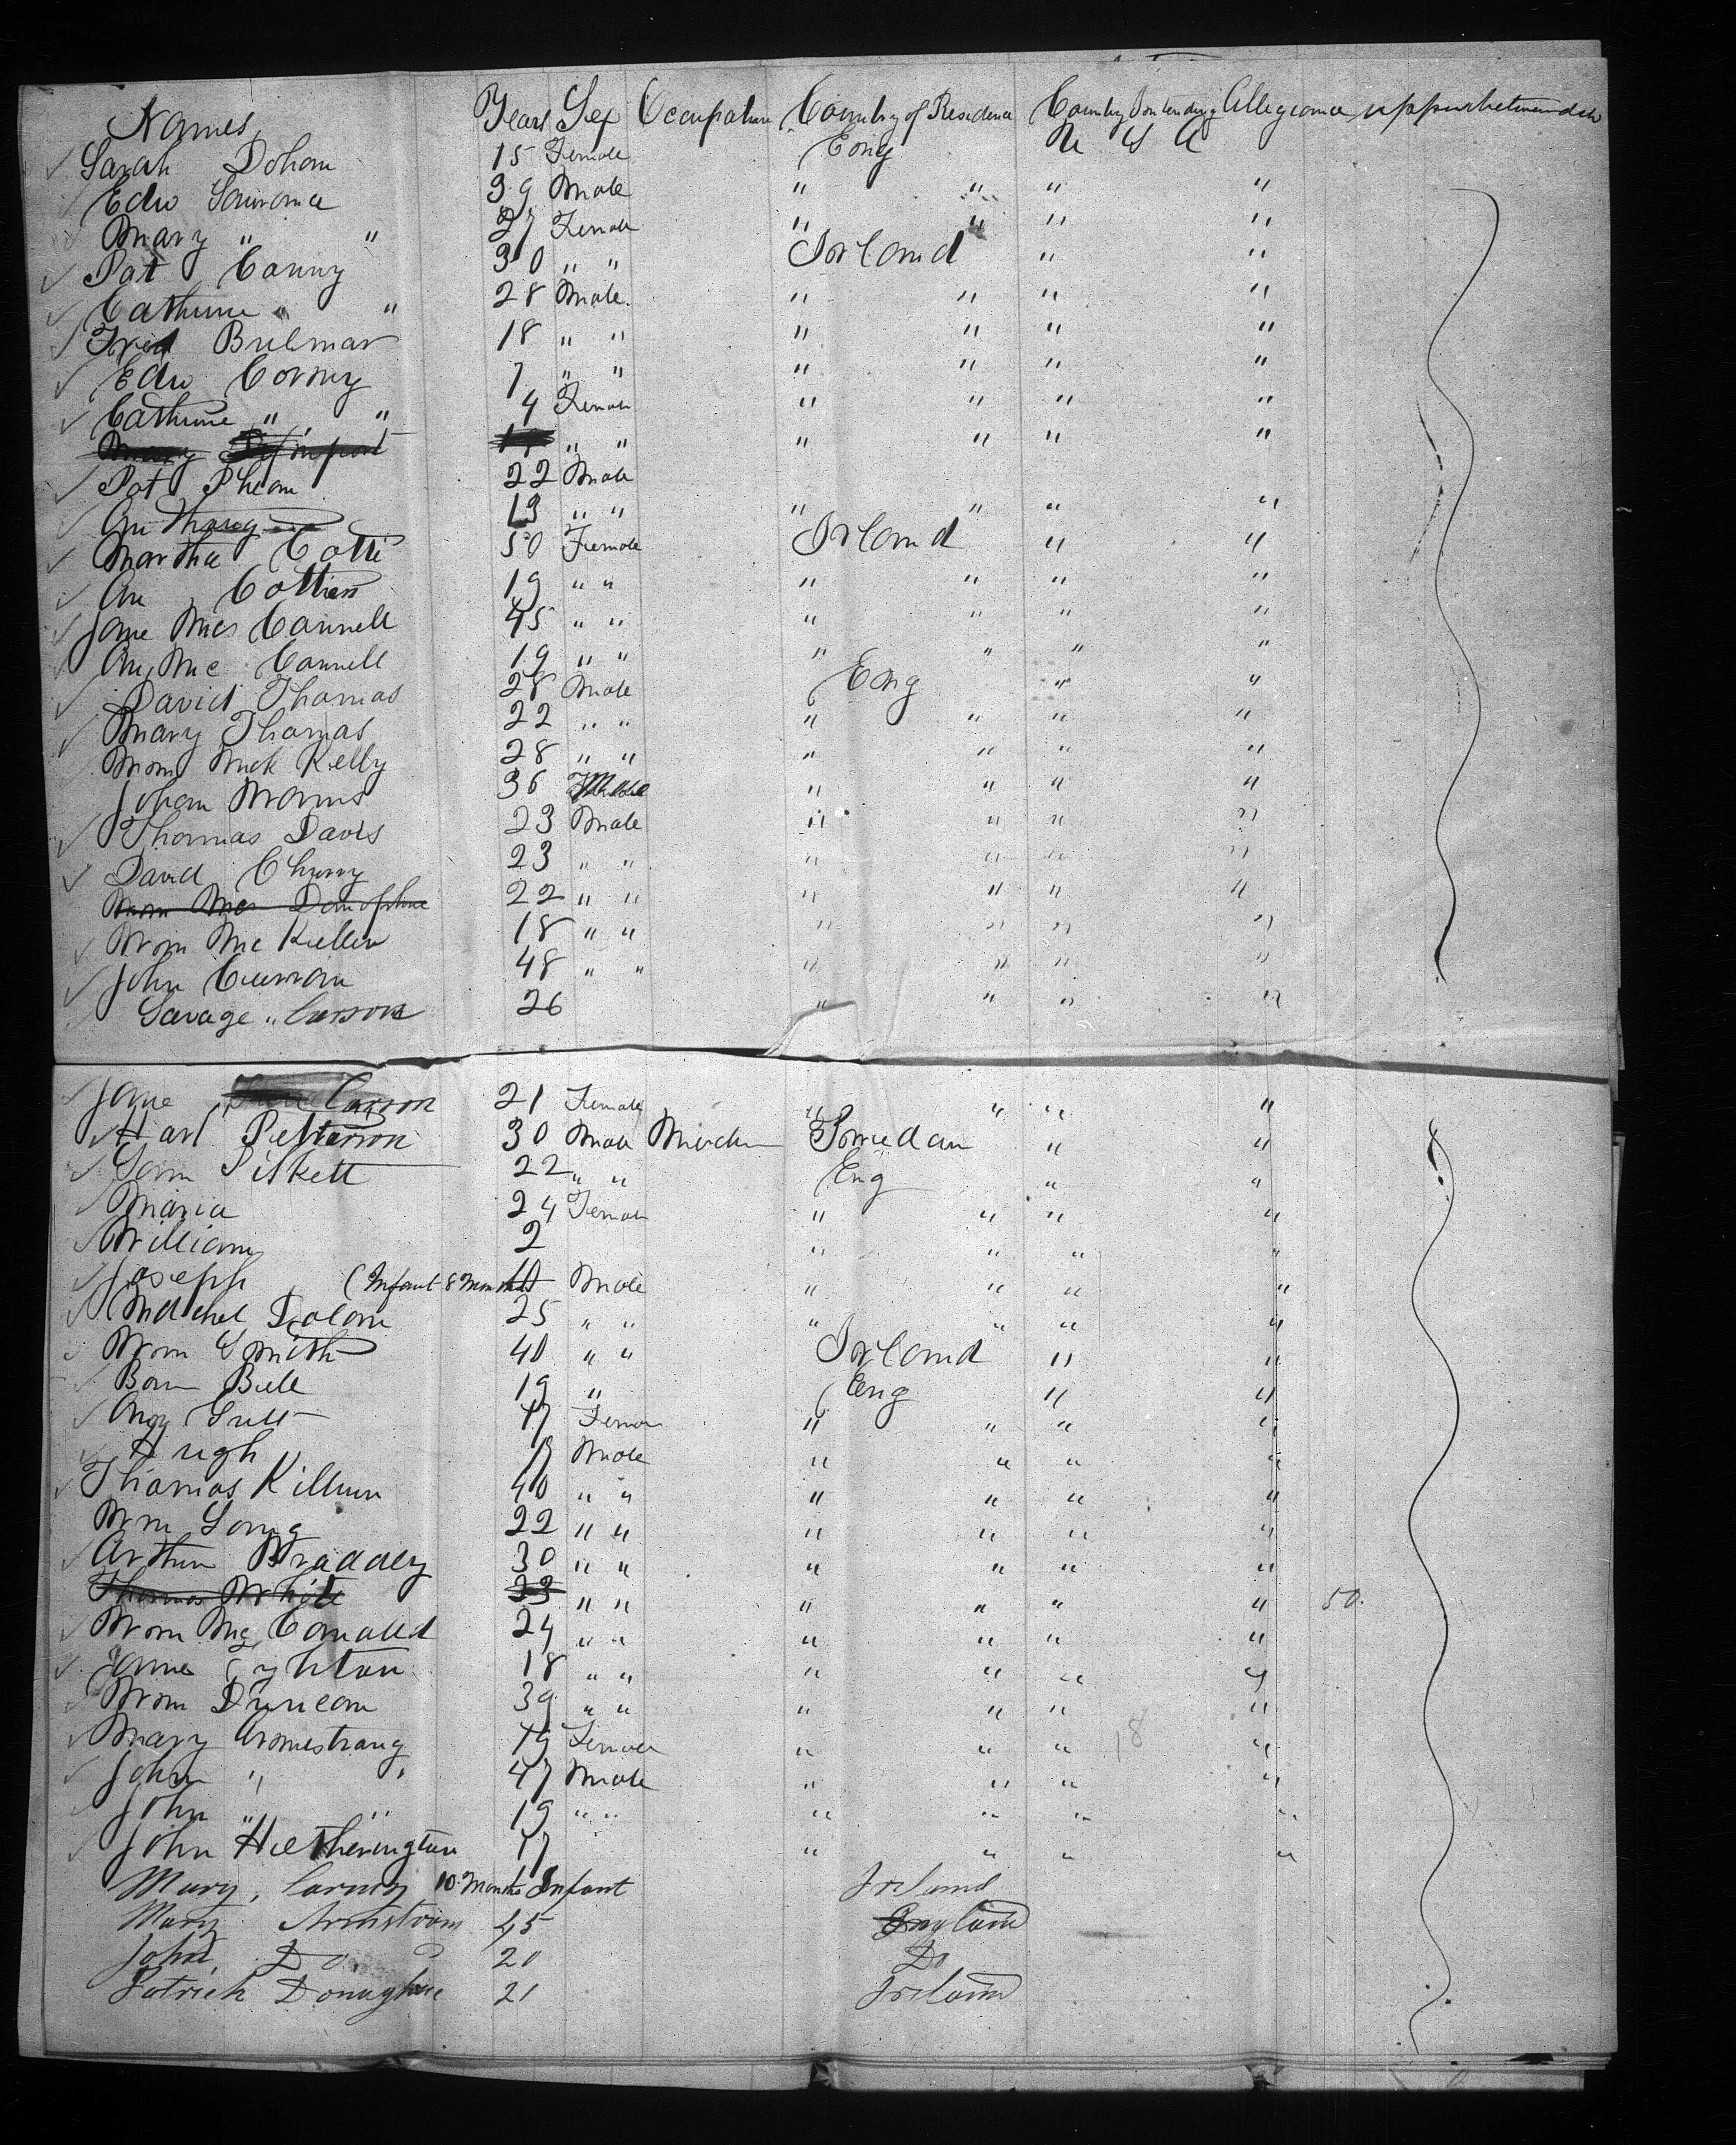 Names Years Sex Occupation Country of Residence Country Intending Allegiance
Sarah Dohan 15 Female Eng U S A
Edw Lawrance 39 Male " " " "
Mary " " 27 Female " " " "
Pat Conny 30 " " Irland " "
Cathrine " " 28 Male " " " "
Fred 18 " " " " " "
Edw Corny 7 " " " " " "
Cathrine " " 4 Female " " " "
Mary " " " " " "
Pat Phelan 22 Male
An 13 " " " " " "
Martha Cotti 50 Female Irland " "
An Cottien 19 " " " " " "
Jane Mc Connell 45 " " " " " "
An Mc Connell 19 " " " " " "
David Thomas 28 Male Eng " "
Mary Thomas 22 " " " " " "
Wm Kelly 28 " " " " " "
Johan 36 " " " "
Thomas Davis 23 Male " " " "
David Cherry 23 " " " " " "
Wm Mc Donoghue 22 " " " " " "
Wm Mc Kellen 18 " " " " " "
John Curran 48 " " " " " "
Savage " Carson 26 " " " "
Jane Carson 21 Female " " " "
Karl Petterson 30 Male Swedan " "
Sam Piskett 22 " " Eng " "
Maria 24 Female " " " "
William 2 " " " "
Joseph (Infant 8 Months Male " " " "
Michel Dolan 25 " " " " " "
Wm Smith 40 " " Irland " "
Bell 19 " Eng " "
17 Female " " " "
Hugh 17 Male " " " "
Thomas Killen 40 " " " " " "
Wm Long 22 " " " " " "
Arthur Bradley 30 " " " " " "
Thomas White 23 " " " " " " 50.
Wm Mc 24 " " " " " "
18 " " " " " "
Wm Duncan 39 " " " " " "
Mary Armestrang 19 Female " " " " 18
John " " 47 Male " " " "
John " " 19 " " " " " "
John Hetherington 17 " " " "
Mary, Carney 10 Months Infant Ireland
Mary Armstrom 45 England
John, Do 20 Do
Patrick Donaghue 21 Ireland